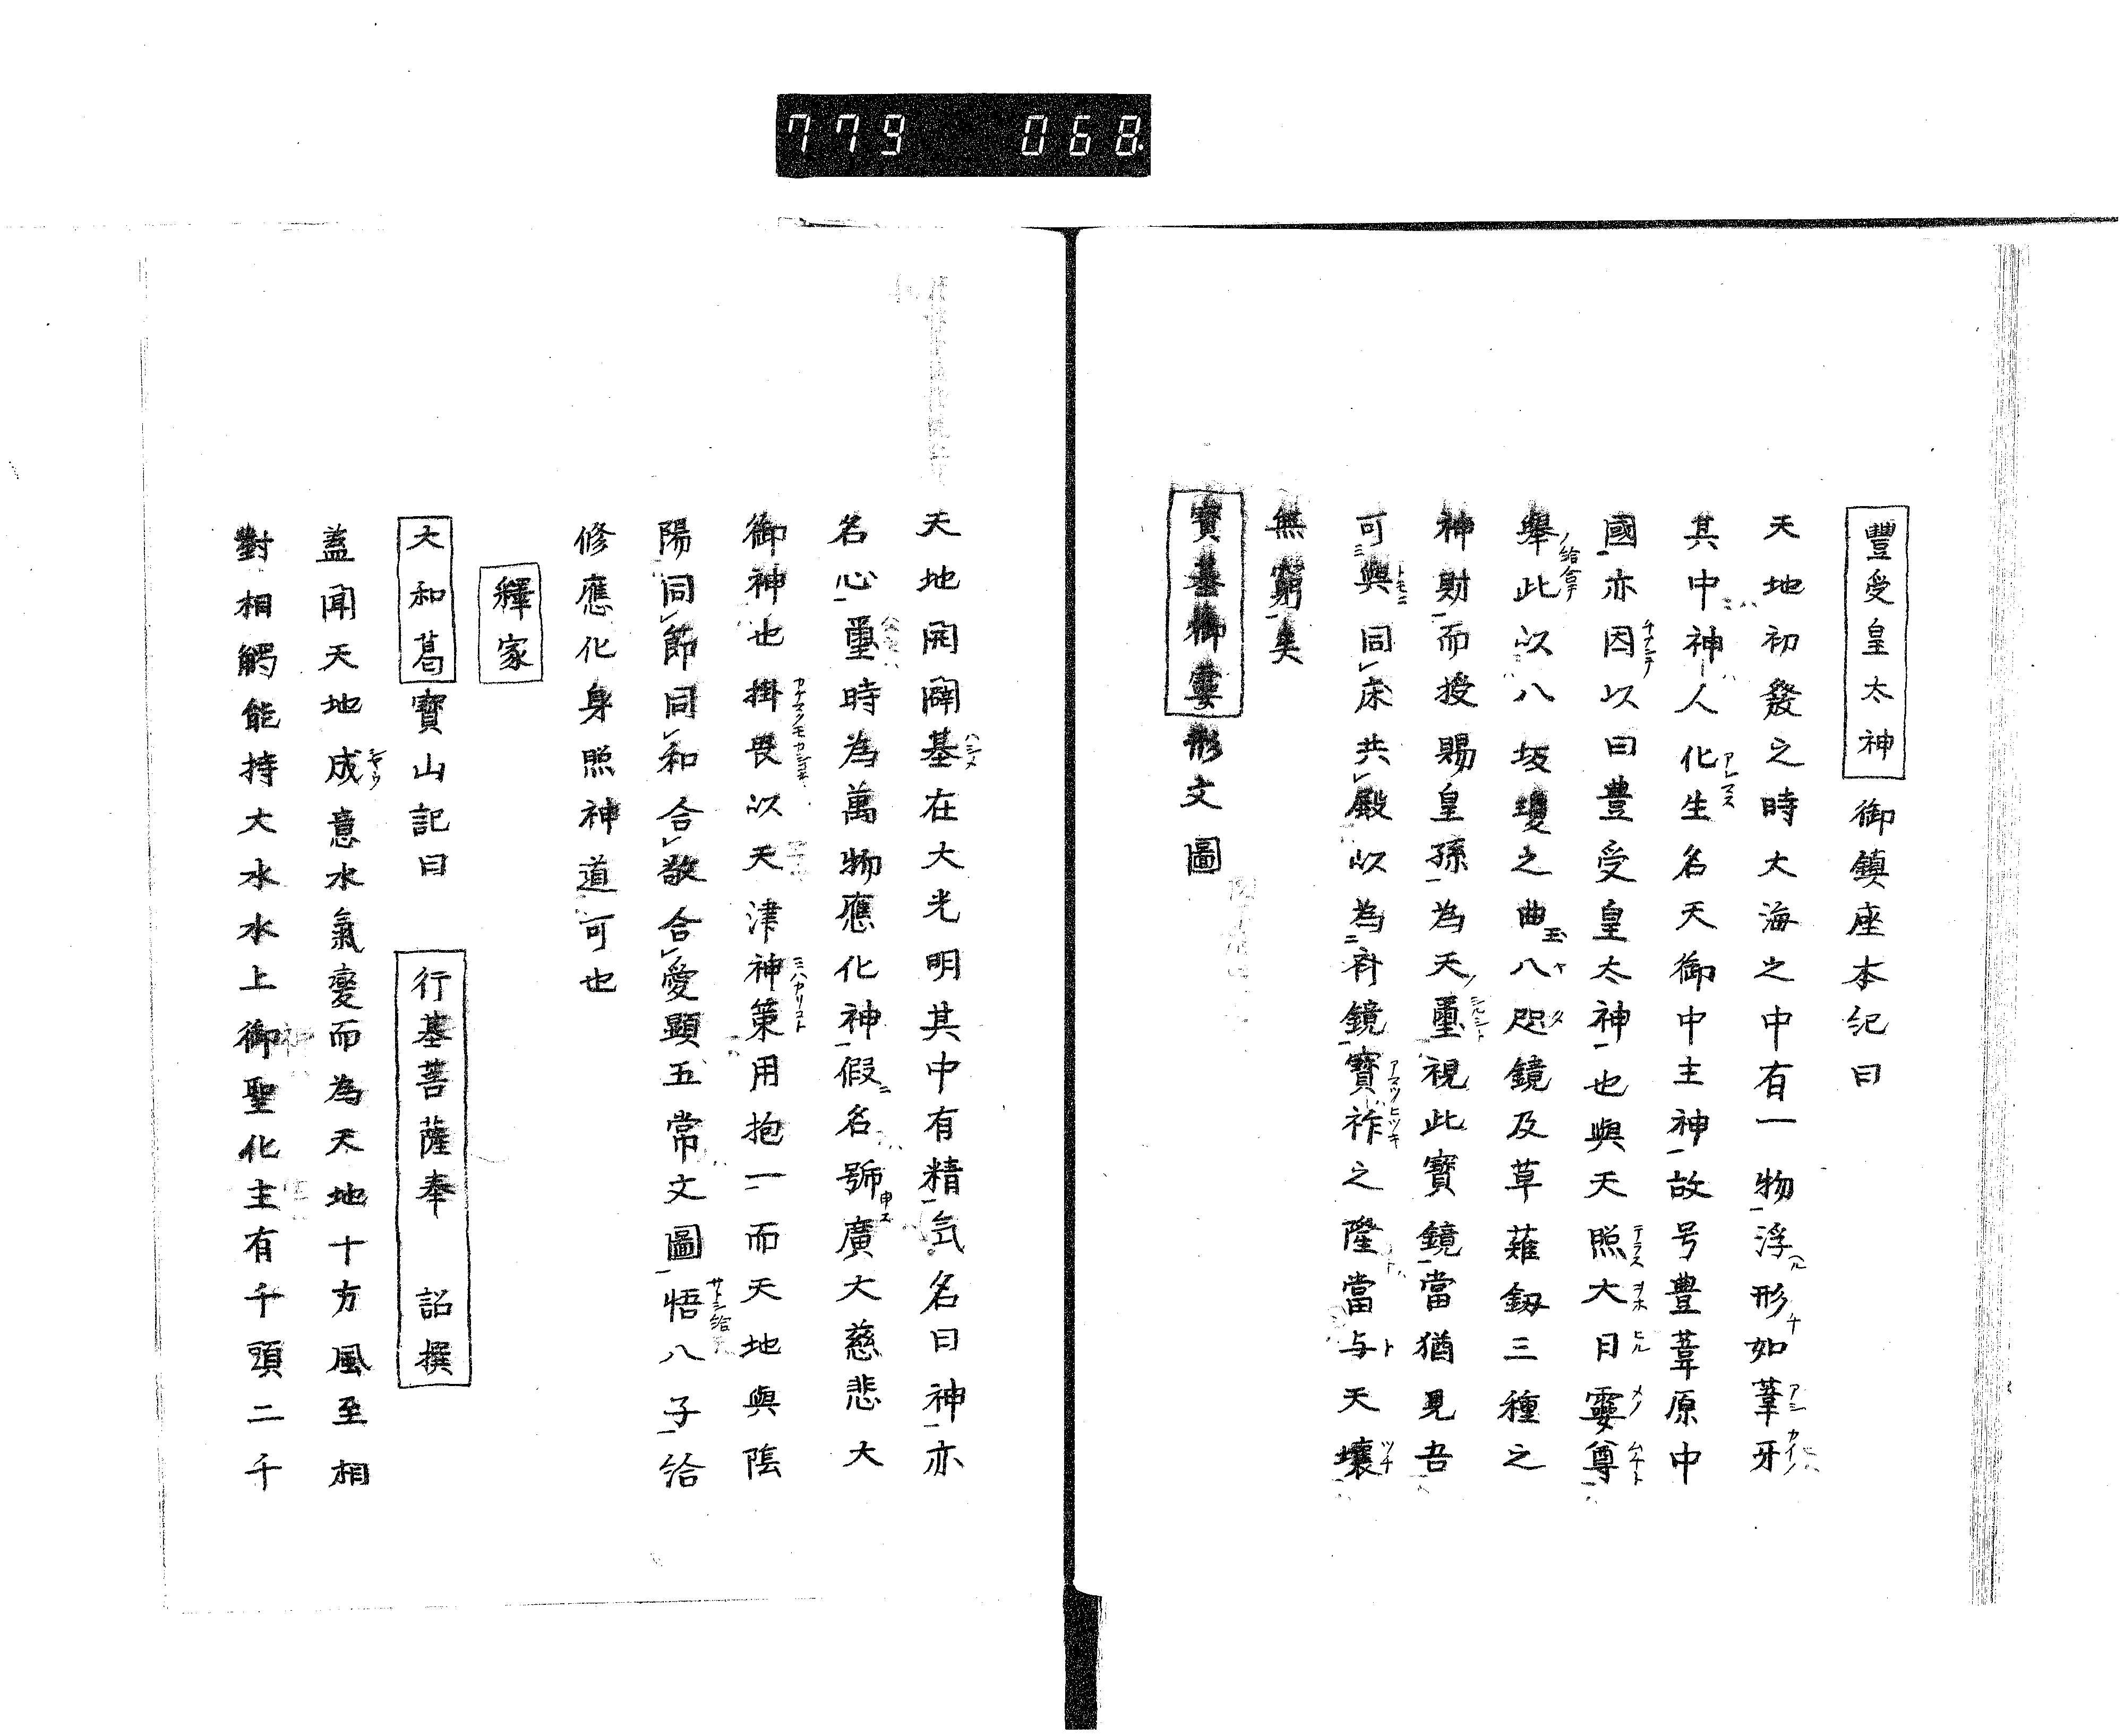 779 068
豐受皇太神御鎮座本紀曰
天地初發之時大海之中有一物浮形如葦牙
其中神人化生名天御中主神故号豊葦原中
國亦因以曰豊受皇太神也與天照大日孁尊
舉此以八坂瓊之曲玉八咫鏡及草薙釼三種之
神財而授賜皇孫為天璽視此寳鏡當猶見吾
可與同床共殿以為斎鏡寳祚之隆當与天壤
無窮矣
寳基御霊形文圖
天地開闢基在大光明其中有精気名曰神亦
名心璽時為萬物應化神假名号廣大慈悲大
御神也掛畏以天津神策用抱一而天地與陰
陽同節同和合敬合愛顯五常文圖悟八子給
修應化身照神道可也
釋家
大和葛寳山記曰 行基菩薩奉 詔撰
蓋聞天地成意水氣變而為天地十方風至相
對相觸能持大水水上御聖化主有千頭二千